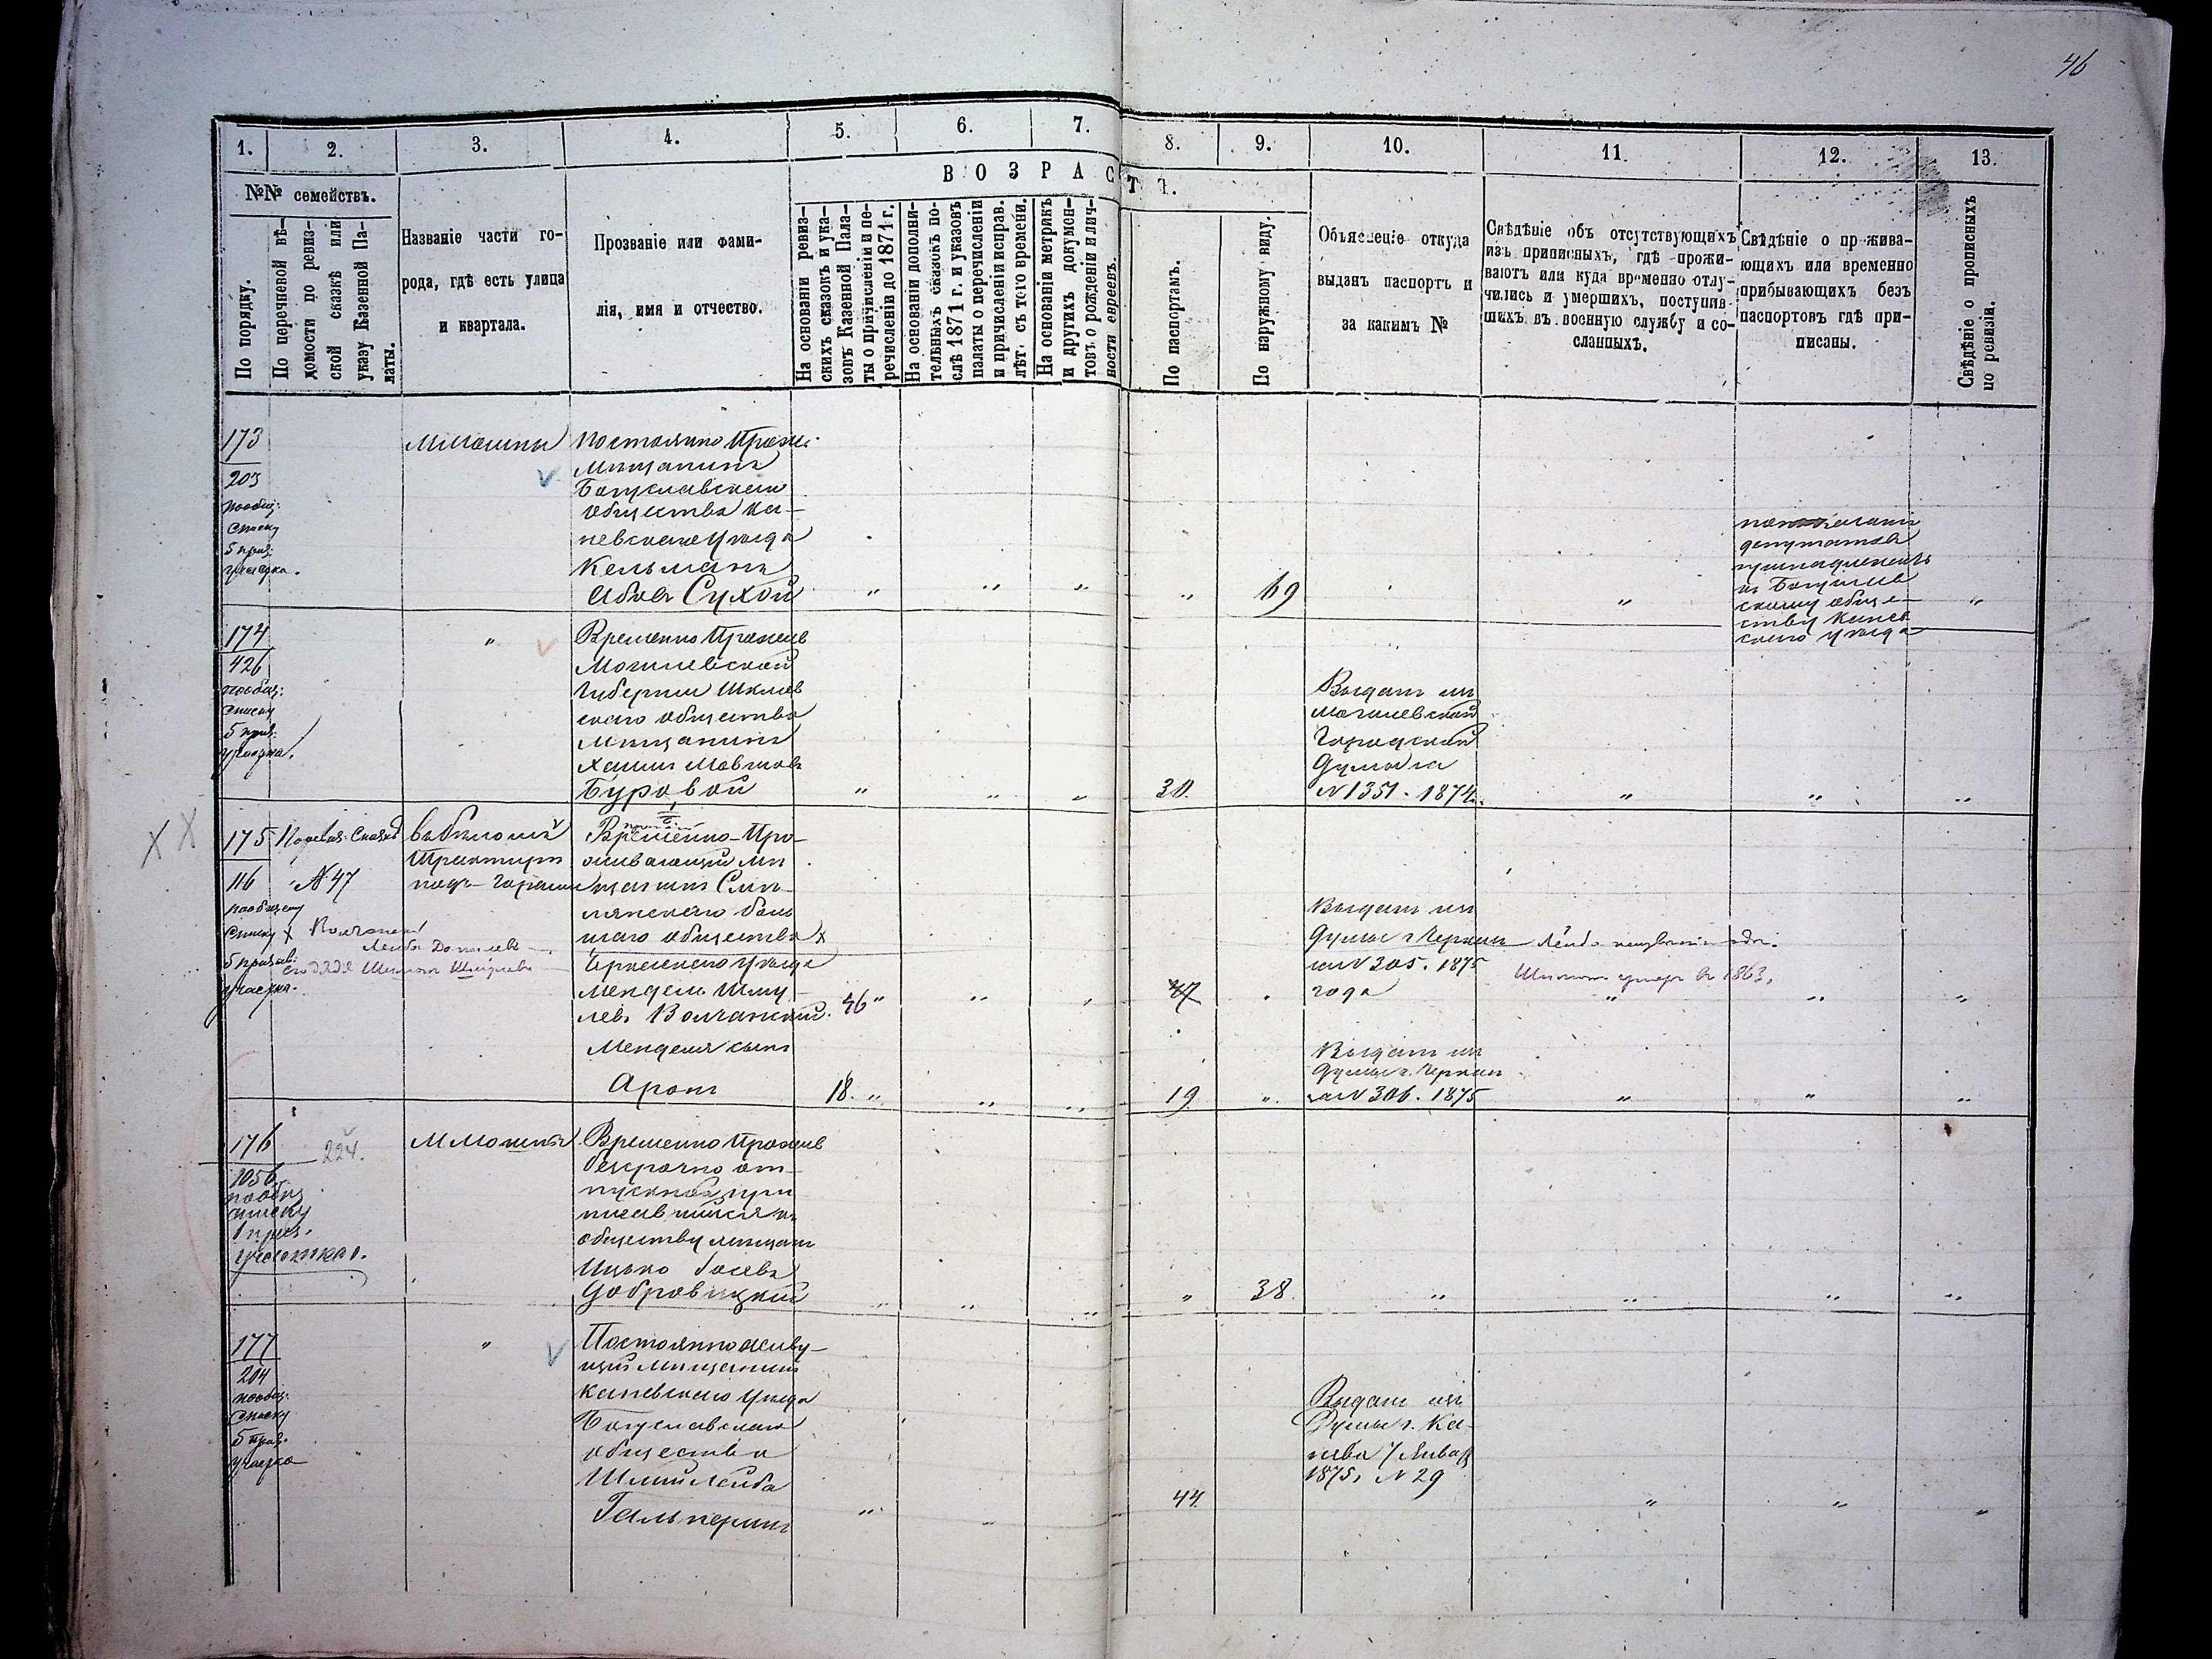 46
1.
2.
3.
4.
5.
6.
7.
8.
9.
10.
11.
12.
13.
ВОЗРАСТЪ.
№№ семействъ.
По порядку.
По перечневой вѣ-
домости по ревиз-
ской сказкѣ или
указу Казенной Па-
латы.
Названіе части го-
рода, гдѣ есть улица
и квартала.
Прозваніе или фами-
лія, имя и отчество.
На основаніи ревиз-
скихъ сказокъ и ука-
зовъ Казенной Пала-
ты о причисленіи и пе-
речисленіи до 1871 г.
На основаніи дополни-
тельныхъ сказокъ по-
слѣ 1871 г. и указовъ
палаты о перечисленіи
и причисленіи исправ.
лѣт. съ того времени.
На основаніи метрикъ
и другихъ докумен-
товъ о рожденіи и лич-
ности евреевъ.
По паспортамъ.
По наружному виду.
Объясненіе откуда
выданъ паспортъ и
за какимъ №
Свѣдѣніе объ отсутствующихъ
изъ приписныхъ, гдѣ прожи-
ваютъ или куда временно отлу-
чились и умершихъ, поступив-
шихъ въ военную службу и со-
сланныхъ.
Свѣдѣніе о прожива-
ющихъ или временно
прибывающихъ безъ
паспортовъ гдѣ при-
писаны.
Свѣдѣніе о прописныхъ
по ревизіи.
173
203
по общ:
списку
5 приз:
участка.
М Мошны
Постоянно Прожи.
Мищанинъ
Богуславскаго
общества Ка-
невскаго уѣзда
Кельманъ
Абовъ Сухой
"
"
"
"
69
"
депутатовъ
принадлежитъ
къ Богуслав
скому обще-
ству Канев
скаго уѣзда
"
174
426
по общ:
списку
5 приз:
участка.
"
Временно Прожив
Могилевской
Губерніи Шклов
скаго общества
Мищанинъ
Хаимъ Мовшовъ
Буровой
"
"
"
30.
Выданъ изъ
Могилевской
Городской
Думы за
№ 1351. 1874.
"
"
"
X X
175
116
по общему
списку
5 призыв:
участка.
№ 47
Лейба
его дядя Шимонъ
под Горами
Временно-Про-
живающій Мѣ
щанинъ Смѣ-
лянскаго
общества
Мендель Шму-
левъ Волчанскій.
46"
"
"
47
Выданъ изъ
Думы г. Черкасъ
за № 305. 1875
года
Лейба
Шимонъ умеръ въ 1863,
"
"
"
Менделя сынъ
Аронъ
18. "
"
"
19
"
Выданъ изъ
Думы г. Черкас
за № 306. 1875
"
"
"
176
224.
1056
по общ
списку
1 приз.
участка.
М Мошны
Временно Прожив
безсрочно от-
пускной при
писавшійся къ
обществу мищанъ
Ицько Іосевъ
Добровицкій
"
"
"
"
38.
"
"
"
"
177
204
по общ:
списку
5 приз.
участка
"
Постоянно живу-
щій Мищанинъ
Каневскаго уѣзда
Богуславскаго
общества
Лейба
Гальперинъ
"
"
44.
Выданъ изъ
Думы г. Ка-
нева 7 Января
1875, № 29
"
"
"